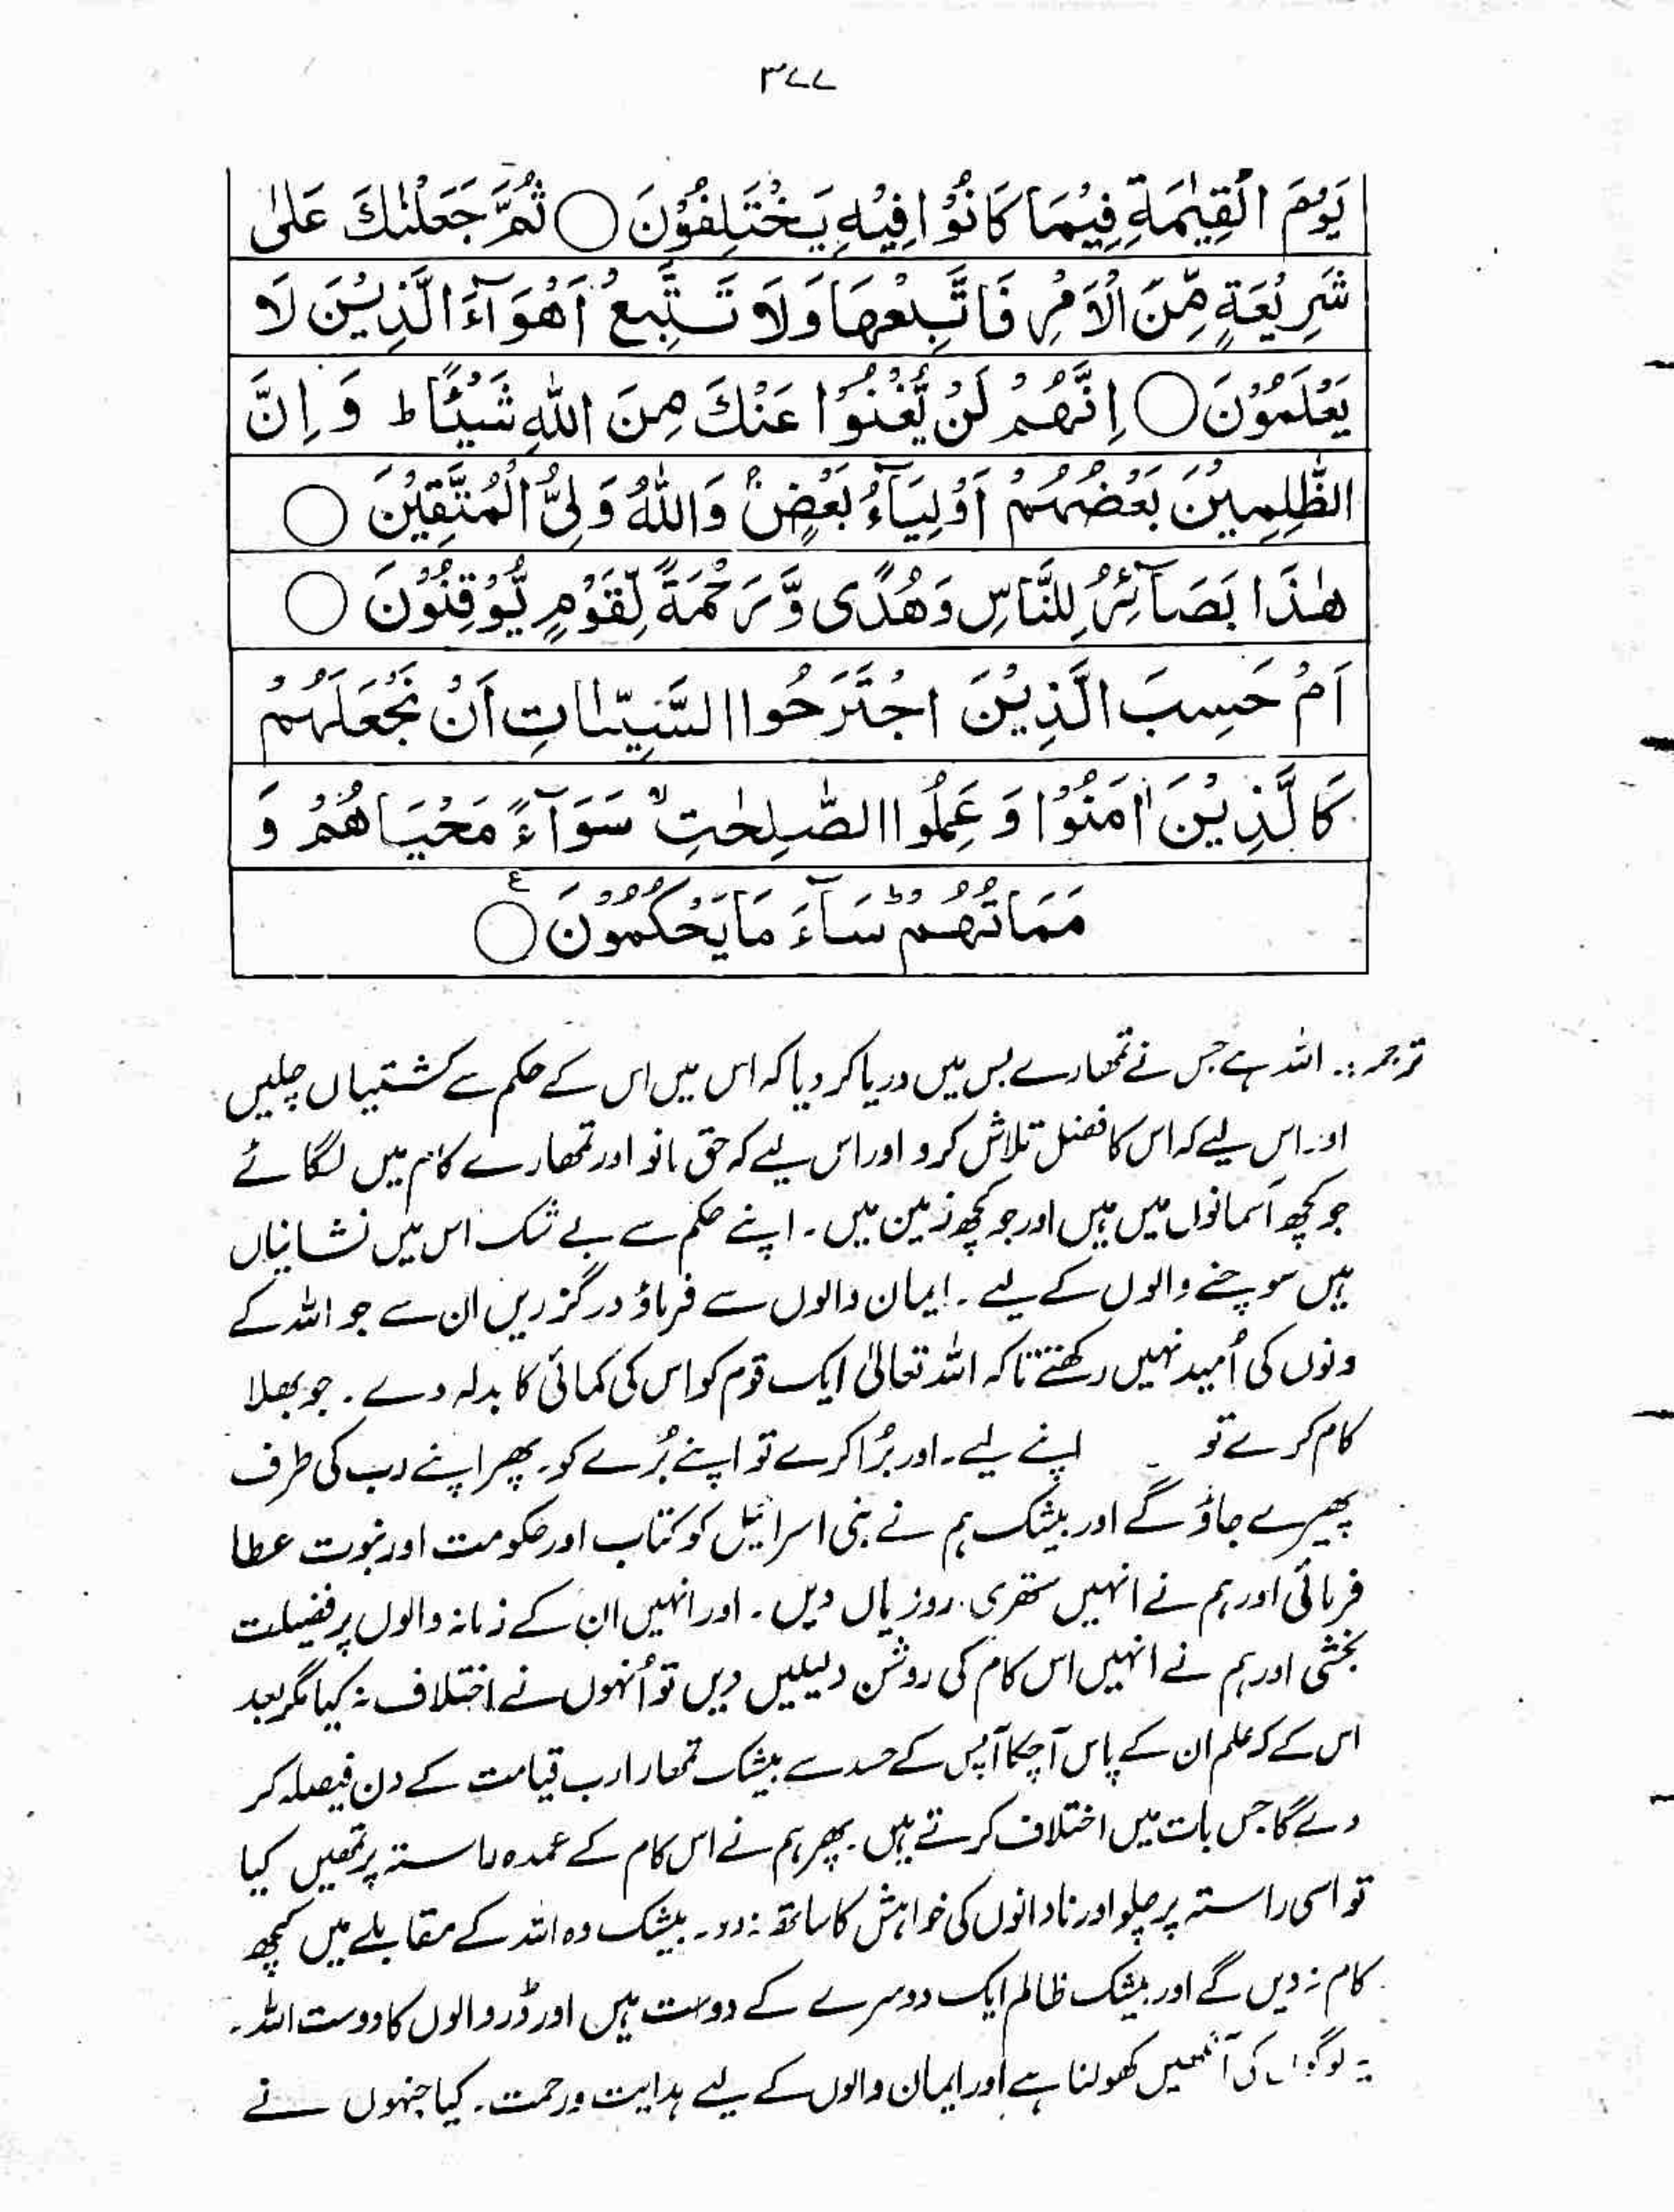 ۳۷۷
يَوْمَ الْقِيٰمَةِ فِيْمَا كَانُوْا فِيْهِ يَخْتَلِفُوْنَ ○ ثُمَّ جَعَلْنٰكَ عَلٰى
شَرِيْعَةٍ مِّنَ الْاَمْرِ فَاتَّبِعْهَا وَلَا تَتَّبِعْ اَهْوَآءَ الَّذِيْنَ لَا
يَعْلَمُوْنَ ○ اِنَّهُمْ لَنْ يُّغْنُوْا عَنْكَ مِنَ اللّٰهِ شَيْئًا ط وَ اِنَّ
الظّٰلِمِيْنَ بَعْضُهُمْ اَوْلِيَآءُ بَعْضٍ ۚ وَاللّٰهُ وَلِىُّ الْمُتَّقِيْنَ ○
هٰذَا بَصَآئِرُ لِلنَّاسِ وَهُدًى وَّرَحْمَةً لِّقَوْمٍ يُّوْقِنُوْنَ ○
اَمْ حَسِبَ الَّذِيْنَ اجْتَرَحُوا السَّيِّاٰتِ اَنْ نَّجْعَلَهُمْ
كَالَّذِيْنَ اٰمَنُوْا وَ عَمِلُوا الصّٰلِحٰتِ ۙ سَوَآءً مَحْيَاهُمْ وَ
مَمَاتُهُمْ ؕ سَآءَ مَا يَحْكُمُوْنَ ○ ع
ترجمہ:۔ اللہ ہے جس نے تمھارے بس میں دریا کر دیا کہ اس میں اس کے حکم سے کشتیاں چلیں
اور اس لیے کہ اس کا فضل تلاش کرو اور اس لیے کہ حق مانو اور تمھارے کام میں لگائے
جو کچھ آسمانوں میں ہیں اور جو کچھ زمین میں۔ اپنے حکم سے بے شک اس میں نشانیاں
ہیں سوچنے والوں کے لیے۔ ایمان والوں سے فرماؤ درگزریں ان سے جو اللہ کے
دنوں کی اُمید نہیں رکھتے تاکہ اللہ تعالیٰ ایک قوم کو اس کی کمائی کا بدلہ دے۔ جو بھلا
کام کرے تو اپنے لیے۔ اور بُرا کرے تو اپنے بُرے کو۔ پھر اپنے رب کی طرف
پھیرے جاؤ گے اور بیشک ہم نے بنی اسرائیل کو کتاب اور حکومت اور نبوت عطا
فرمائی اور ہم نے انہیں ستھری روزیاں دیں۔ اور انہیں ان کے زمانہ والوں پر فضیلت
بخشی اور ہم نے انہیں اس کام کی روشن دلیلیں دیں تو اُنہوں نے اختلاف نہ کیا مگر بعد
اس کے کہ علم ان کے پاس آچکا آپس کے حسد سے بیشک تمھارا رب قیامت کے دن فیصلہ کر
دے گا جس بات میں اختلاف کرتے ہیں۔ پھر ہم نے اس کام کے عمدہ راستہ پر تمھیں کیا
تو اسی راستہ پر چلو اور نادانوں کی خواہش کا ساتھ نہ دو۔ بیشک وہ اللہ کے مقابلے میں کچھ
کام نہ دیں گے اور بیشک ظالم ایک دوسرے کے دوست ہیں اور ڈر والوں کا دوست اللہ۔
یہ لوگوں کی آنکھیں کھولنا ہے اور ایمان والوں کے لیے ہدایت و رحمت۔ کیا جنہوں نے